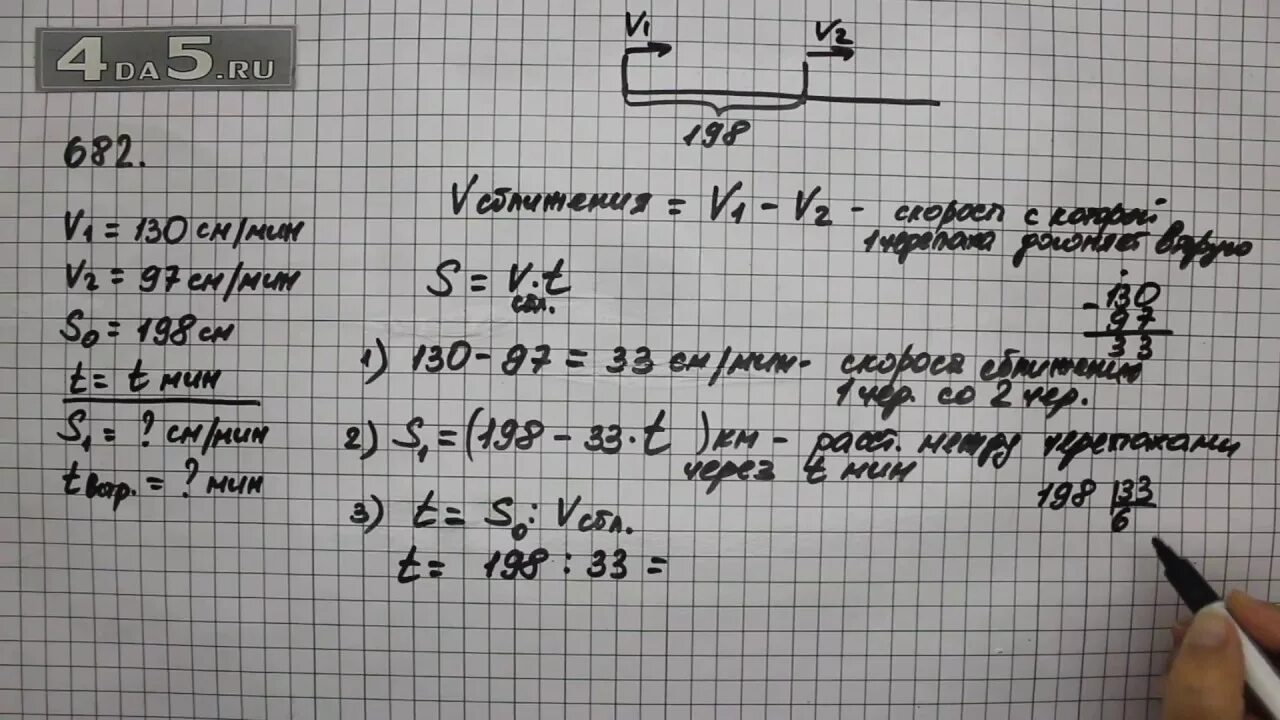 4DA5.RU
V1 V2
198
682.
V1 = 130 см/мин
V2 = 97 см/мин
S0 = 198 см
t = t мин
S1 = ? см/мин
t встр. = ? мин
V сближения = V1 - V2 - скорость с которой
1 черепаха догоняет вторую
S = V сбл. · t
130
- 97
33
1) 130 - 97 = 33 см/мин - скорость сближения
1 чер. со 2 чер.
2) S1 = (198 - 33 · t ) км - расст. между черепахами
через t мин
198 33
6
3) t = S0 : V сбл.
t = 198 : 33 =